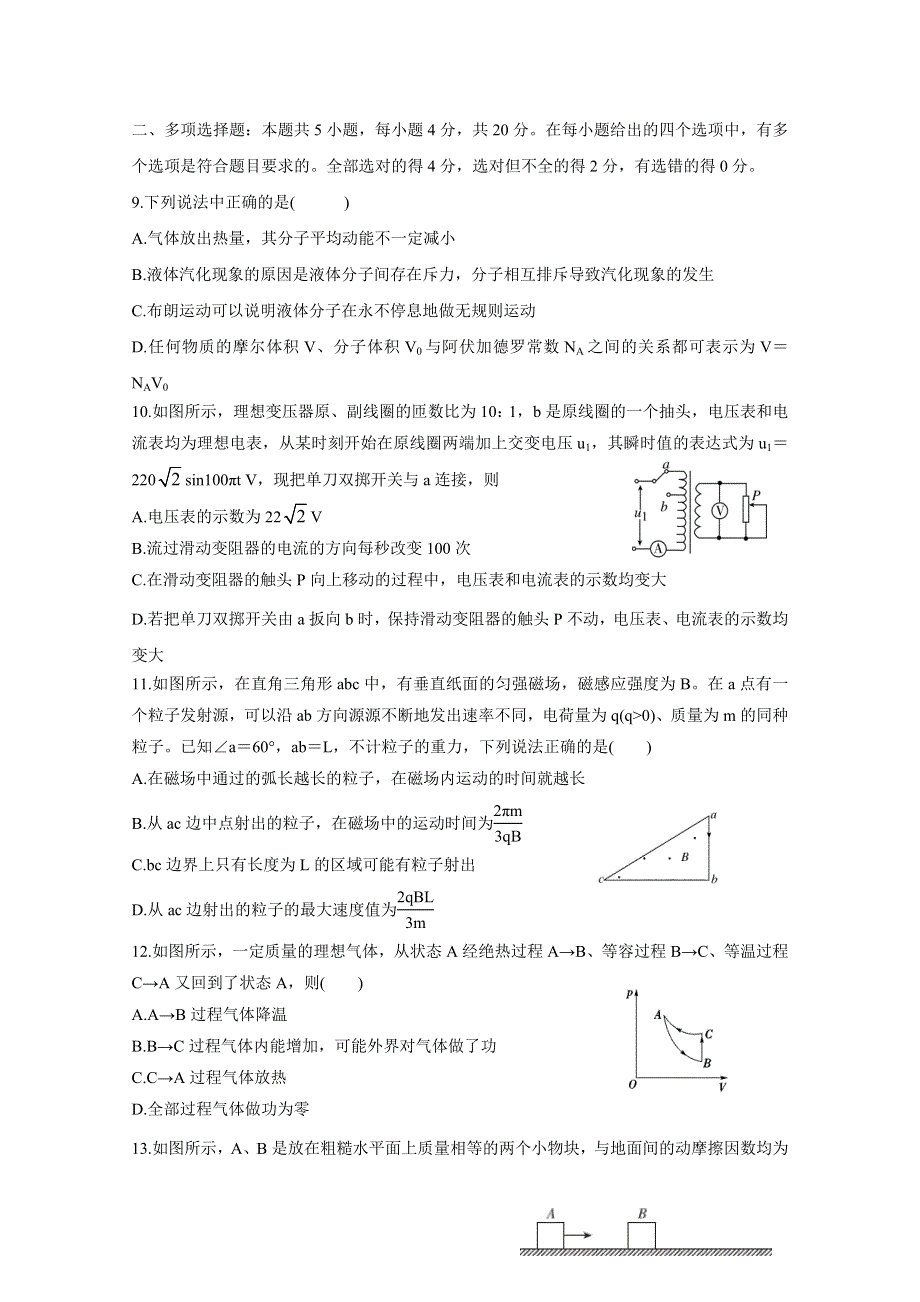 二、多项选择题：本题共 5 小题，每小题 4 分，共 20 分。在每小题给出的四个选项中，有多
个选项是符合题目要求的。全部选对的得 4 分，选对但不全的得 2 分，有选错的得 0 分。
9.下列说法中正确的是(　　)
A.气体放出热量，其分子平均动能不一定减小
B.液体汽化现象的原因是液体分子间存在斥力，分子相互排斥导致汽化现象的发生
C.布朗运动可以说明液体分子在永不停息地做无规则运动
D.任何物质的摩尔体积 V、分子体积 V₀ 与阿伏加德罗常数 N_A 之间的关系都可表示为 V＝
N_AV₀
10.如图所示，理想变压器原、副线圈的匝数比为 10∶1，b 是原线圈的一个抽头，电压表和电
流表均为理想电表，从某时刻开始在原线圈两端加上交变电压 u₁，其瞬时值的表达式为 u₁＝
220√2 sin100πt V，现把单刀双掷开关与 a 连接，则
A.电压表的示数为 22√2 V
B.流过滑动变阻器的电流的方向每秒改变 100 次
C.在滑动变阻器的触头 P 向上移动的过程中，电压表和电流表的示数均变大
D.若把单刀双掷开关由 a 扳向 b 时，保持滑动变阻器的触头 P 不动，电压表、电流表的示数均
变大
a
b
u₁
A
V
P
11.如图所示，在直角三角形 abc 中，有垂直纸面的匀强磁场，磁感应强度为 B。在 a 点有一
个粒子发射源，可以沿 ab 方向源源不断地发出速率不同，电荷量为 q(q>0)、质量为 m 的同种
粒子。已知∠a＝60°，ab＝L，不计粒子的重力，下列说法正确的是(　　)
A.在磁场中通过的弧长越长的粒子，在磁场内运动的时间就越长
B.从 ac 边中点射出的粒子，在磁场中的运动时间为2πm/3qB
C.bc 边界上只有长度为 L 的区域可能有粒子射出
D.从 ac 边射出的粒子的最大速度值为2qBL/3m
a
B
c
b
12.如图所示，一定质量的理想气体，从状态 A 经绝热过程 A→B、等容过程 B→C、等温过程
C→A 又回到了状态 A，则(　　)
A.A→B 过程气体降温
B.B→C 过程气体内能增加，可能外界对气体做了功
C.C→A 过程气体放热
D.全部过程气体做功为零
p
A
C
B
O
V
13.如图所示，A、B 是放在粗糙水平面上质量相等的两个小物块，与地面间的动摩擦因数均为
A
B